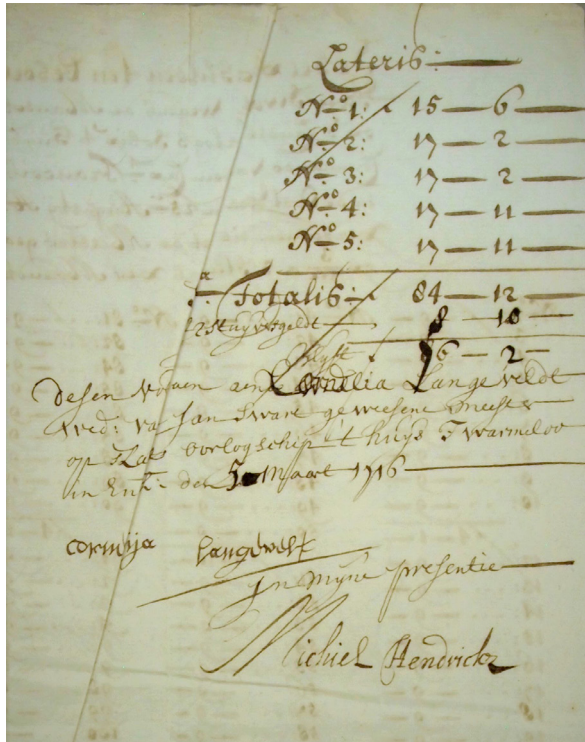 Lateris:
No 1: 15 — 6
No 2: 17 — 2
No 3: 17 — 2
No 4: 17 — 11
No 5: 17 — 11
Totalis: 84 — 12
8 — 10
blyft f 76 — 2 —
Desen voldaen aen Cornelia Langeveldt
wed: va Jan Swart geweesene meester
op 's Lands oorlogschip 't huys Twarmeloo
in Enk: den 5 Maart 1716
cornija Langevelt
In myne presentie
Michiel Hendrickz